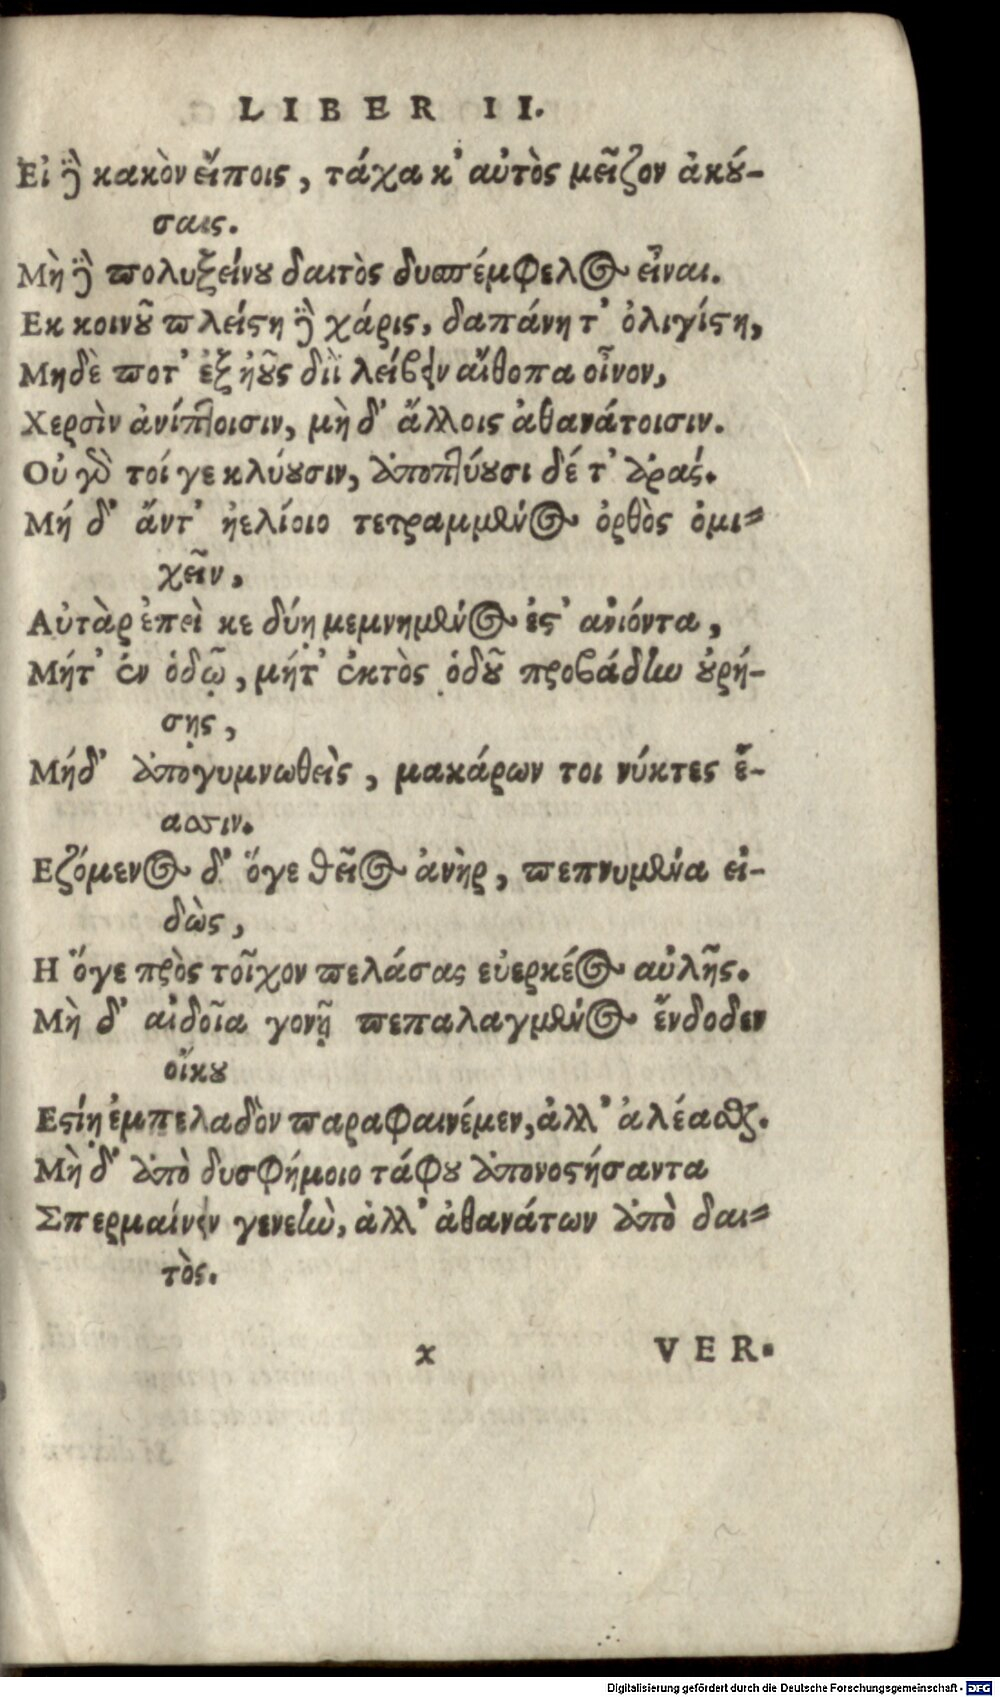 LIBER II.
Εἰ δὲ κακὸν εἴποις, τάχα κ' αὐτὸς μεῖζον ἀκού-
σαις.
Μὴ δὲ πολυξείνου δαιτὸς δυσπέμφελος εἶναι.
Εκ κοινοῦ πλείστη δὲ χάρις, δαπάνη τ' ὀλιγίστη,
Μηδὲ ποτ' ἐξ ἠοῦς διῒ λείβειν αἴθοπα οἶνον,
Χερσὶν ἀνίπτοισιν, μὴ δ' ἄλλοις ἀθανάτοισιν.
Οὐ γὰρ τοί γε κλύουσιν, ἀποπτύουσι δέ τ' ἀράς.
Μή δ' ἄντ' ἠελίοιο τετραμμένος ὀρθὸς ὀμι-
χεῖν,
Αὐτὰρ ἐπεὶ κε δύη μεμνημένος ἔς' ἀνιόντα,
Μήτ' ἐν ὁδῷ, μήτ' ἐκτὸς ὁδοῦ προβάδην οὐρή-
σῃς,
Μήδ' ἀπογυμνωθεὶς, μακάρων τοι νύκτες ἔ-
ασσιν.
Εζόμενος δ' ὅγε θεῖος ἀνὴρ, πεπνυμένα εἰ-
δὼς,
Η ὅγε πρὸς τοῖχον πελάσας εὐερκέος αὐλῆς.
Μὴ δ' αἰδοῖα γονῇ πεπαλαγμένος ἔνδοδεν
οἴκου
Εστίῃ ἐμπελαδὸν παραφαινέμεν, ἀλλ' ἀλέασθαι.
Μὴ δ' ἀπὸ δυσφήμοιο τάφου ἀπονοστήσαντα
Σπερμαίνειν γενεὴν, ἀλλ' ἀθανάτων ἀπὸ δαι-
τὸς.
x VER-
Digitalisierung gefördert durch die Deutsche Forschungsgemeinschaft - DFG